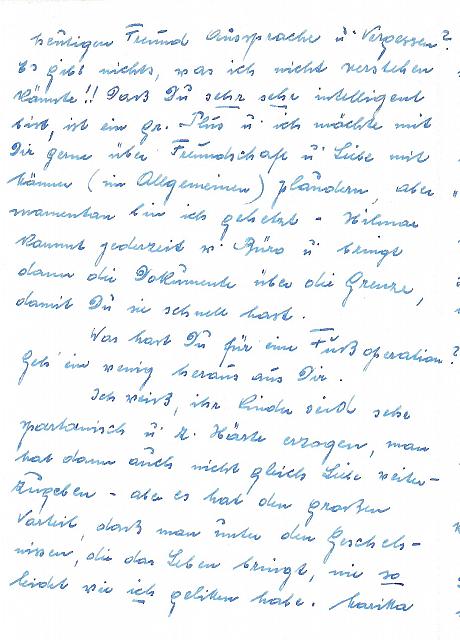 heutigen Freund Aussprache u. Vergessen?
Es gibt nichts, was ich nicht verstehen
könnte!! Daß Du sehr sehr intelligent
bist, ist ein gr. Plus u. ich möchte mit
Dir gerne über Freundschaft u. Liebe mit
können (im Allgemeinen) plaudern, aber
momentan bin ich gehetzt - Hilmar
kommt jederzeit v. Büro u. bringt
dann die Dokumente über die Grenze,
damit Du sie schnell hast.
Was hast Du für eine Fußoperation?
Geh' ein wenig heraus aus Dir.
Ich weiß, ihr Kinder seid sehr
spartanisch u. z. Härte erzogen, man
hat dann auch nicht gleich Liebe weiter-
zugeben - aber es hat den großen
Vorteil, daß man unter den Gescheh-
nissen, die das Leben bringt, nie so
leidet wie ich gelitten habe. Marika